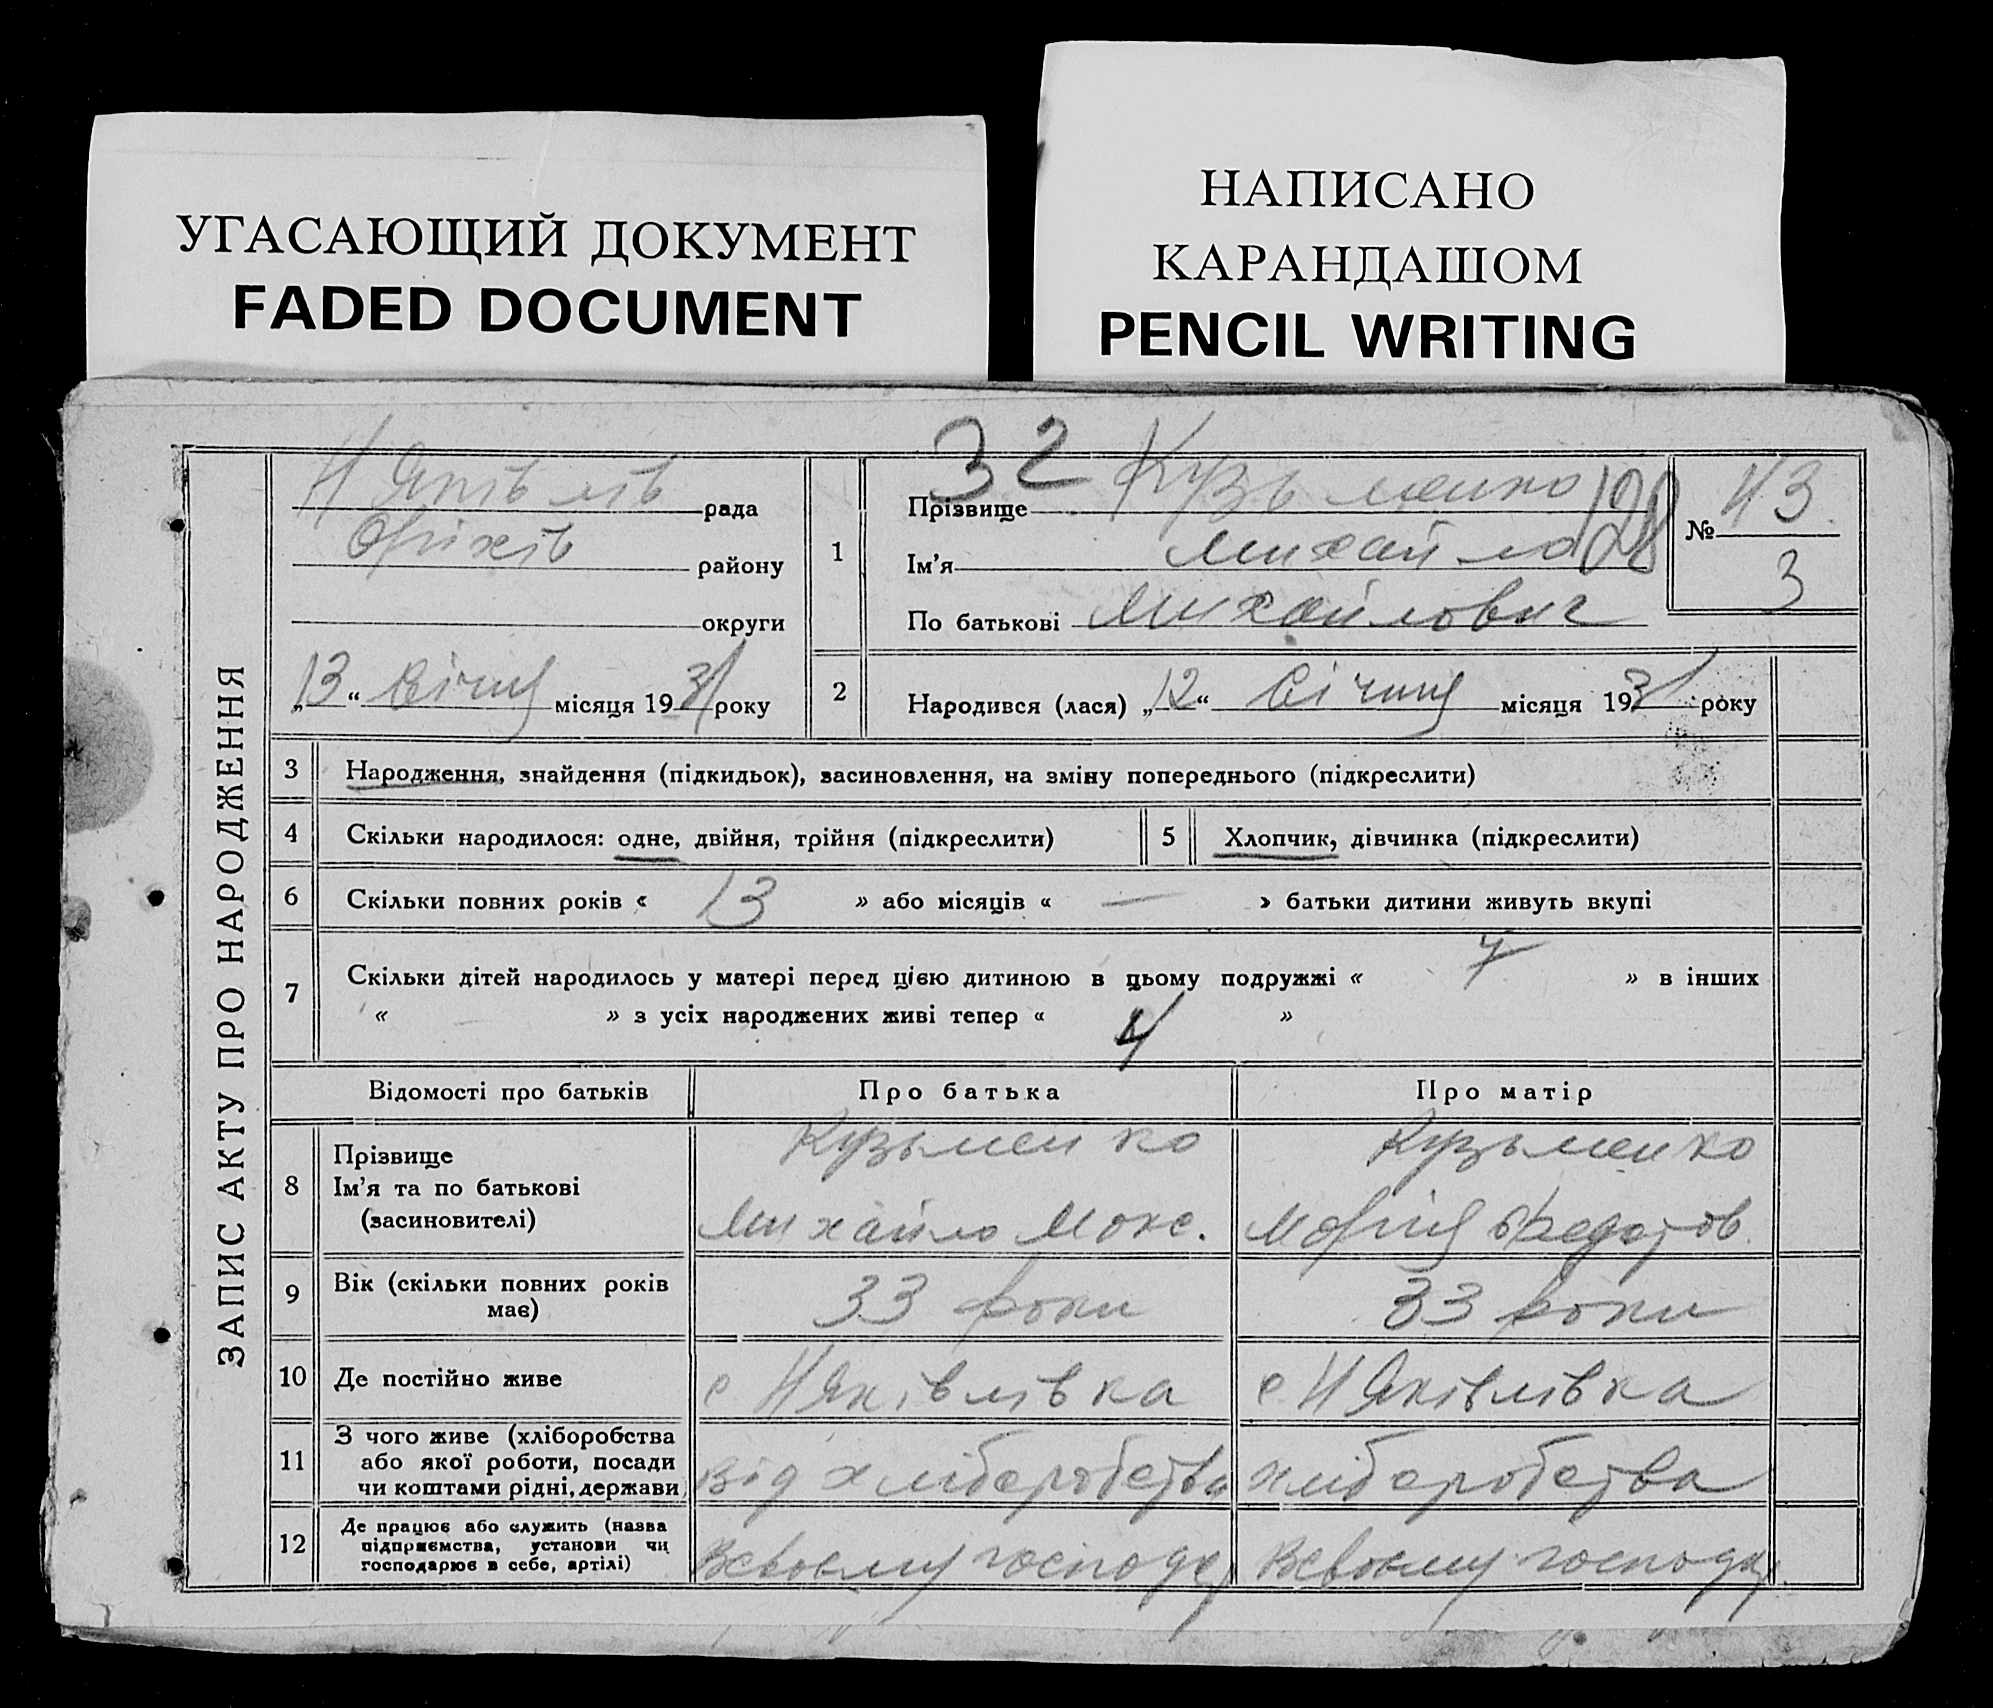 УГАСАЮЩИЙ ДОКУМЕНТ
FADED DOCUMENT
НАПИСАНО
КАРАНДАШОМ
PENCIL WRITING
ЗАПИС АКТУ ПРО НАРОДЖЕННЯ
Н Яківлів рада
Оріхів району
округи
„13“ Січня місяця 1931 року
32
1 Прізвище Кузьменко
Ім'я Михайло
По батькові Михайлович
128
№ 43
3
2 Народився (лася) „12“ Січня місяця 1931 року
3 Народження, знайдення (підкидьок), засиновлення, на зміну попереднього (підкреслити)
4 Скільки народилося: одне, двійня, трійня (підкреслити)
5 Хлопчик, дівчинка (підкреслити)
6 Скільки повних років « 13 » або місяців « — » батьки дитини живуть вкупі
7 Скільки дітей народилось у матері перед цією дитиною в цьому подружжі « 7 » в інших
« — » з усіх народжених живі тепер « 4 »
Відомості про батьків Про батька Про матір
8 Прізвище Кузьменко Кузьменко
Ім'я та по батькові
(засиновителі) Михайло Макс. Марія Федотов.
9 Вік (скільки повних років має) 33 роки 33 роки
10 Де постійно живе с Н Яківлівка с Н Яківлівка
11 З чого живе (хліборобства
або якої роботи, посади
чи коштами рідні, держави від хліборобства хліборобства
12 Де працює або служить (назва
підприємства, установи чи
господарює в себе, артілі) Всвоєму господар Всвоєму господар.